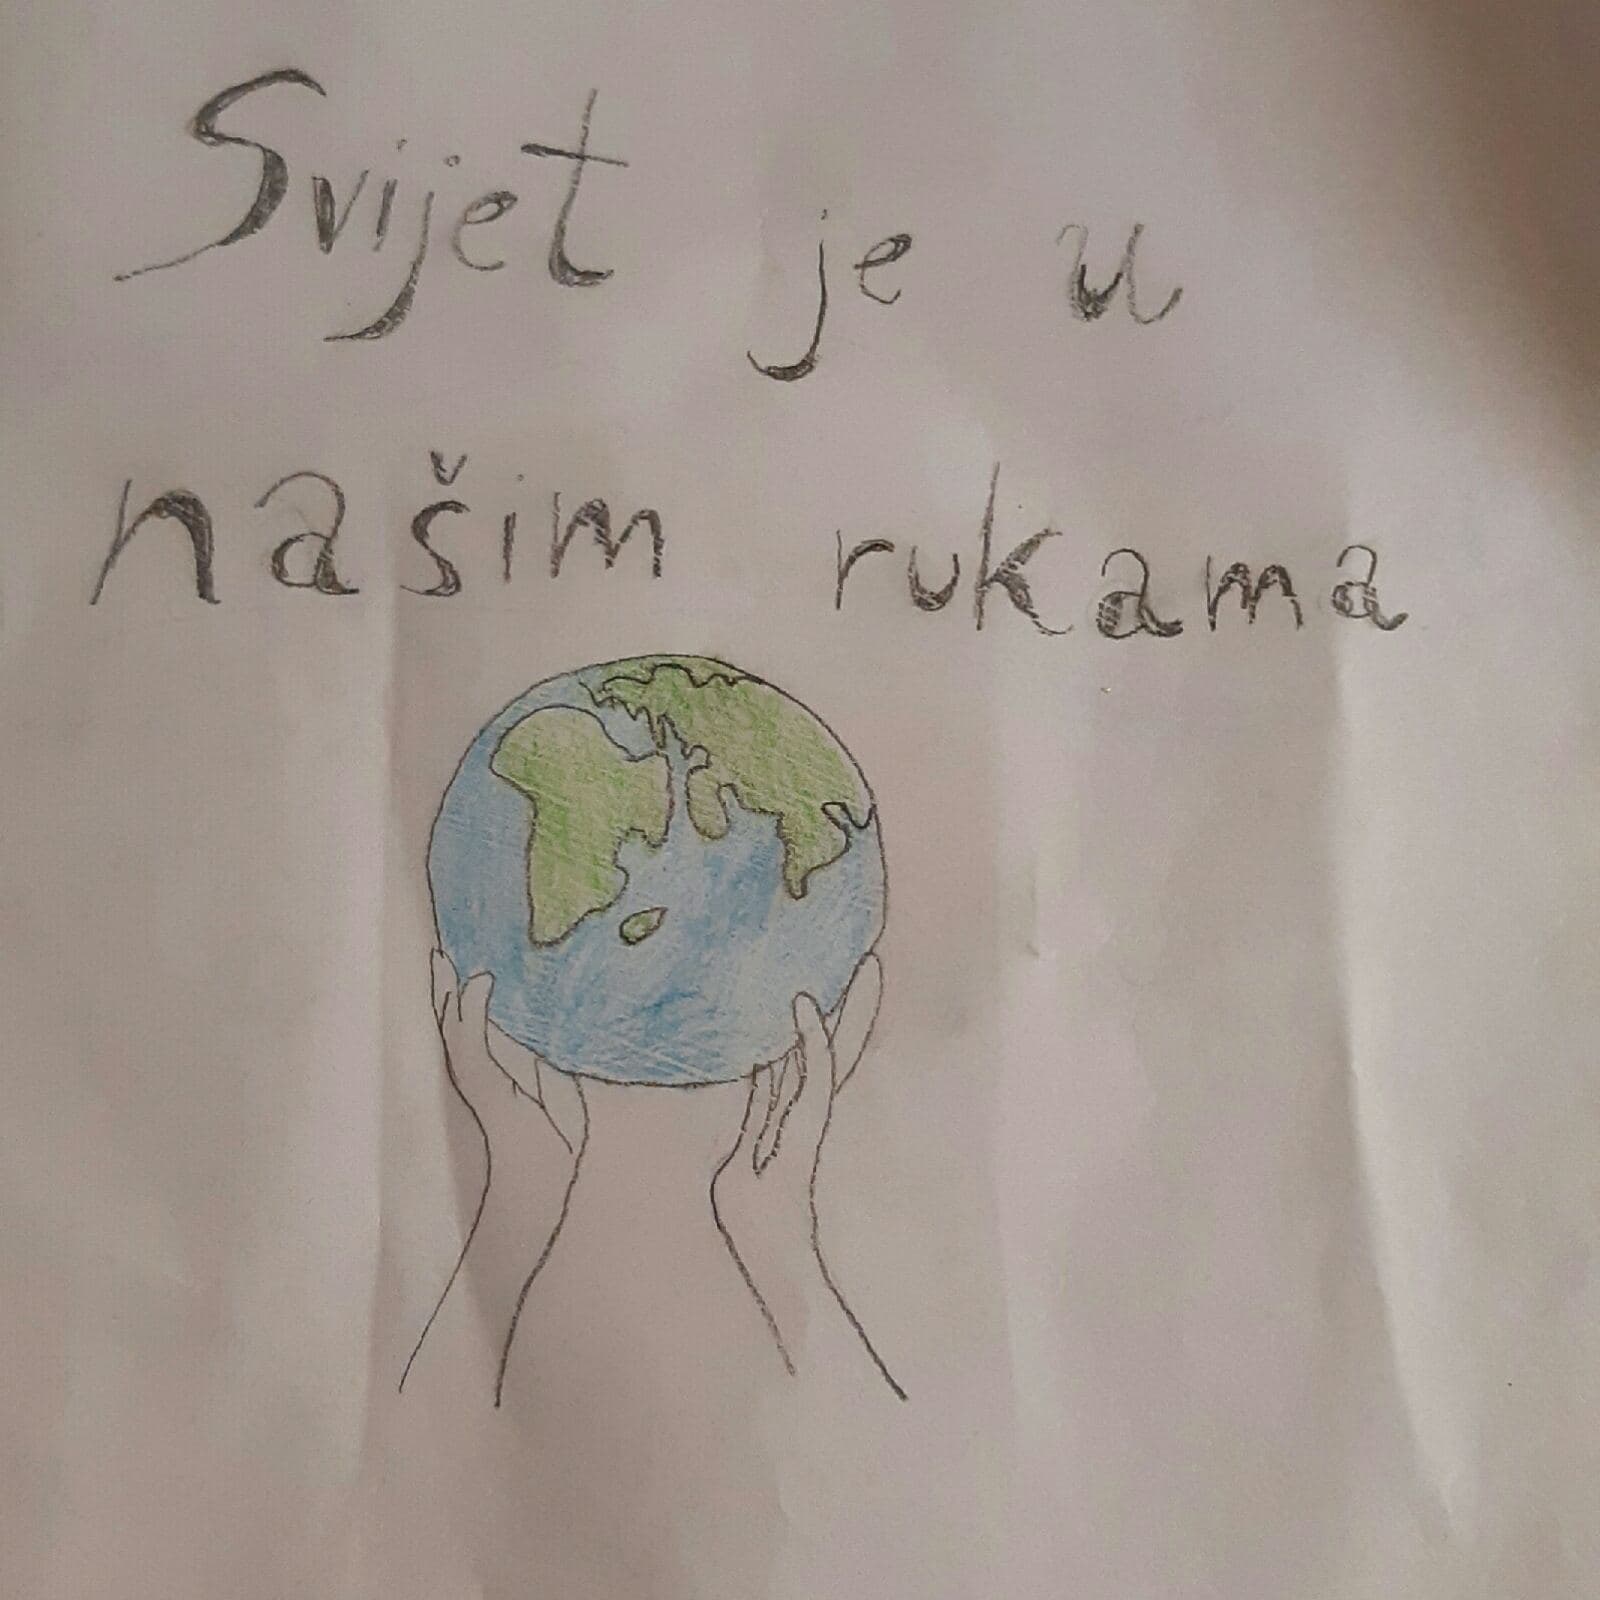 Svijet je u
našim rukama